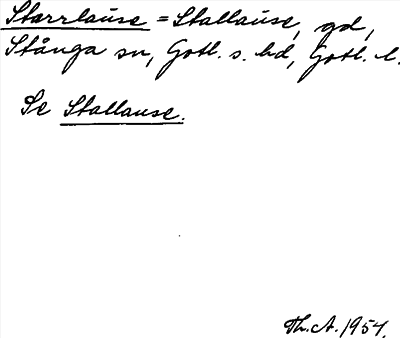 Starrlause = Stallause, gd,
Stånga sn, Gotl. s. hd, Gotl. l.
Se Stallause.
Th. A. 1954.